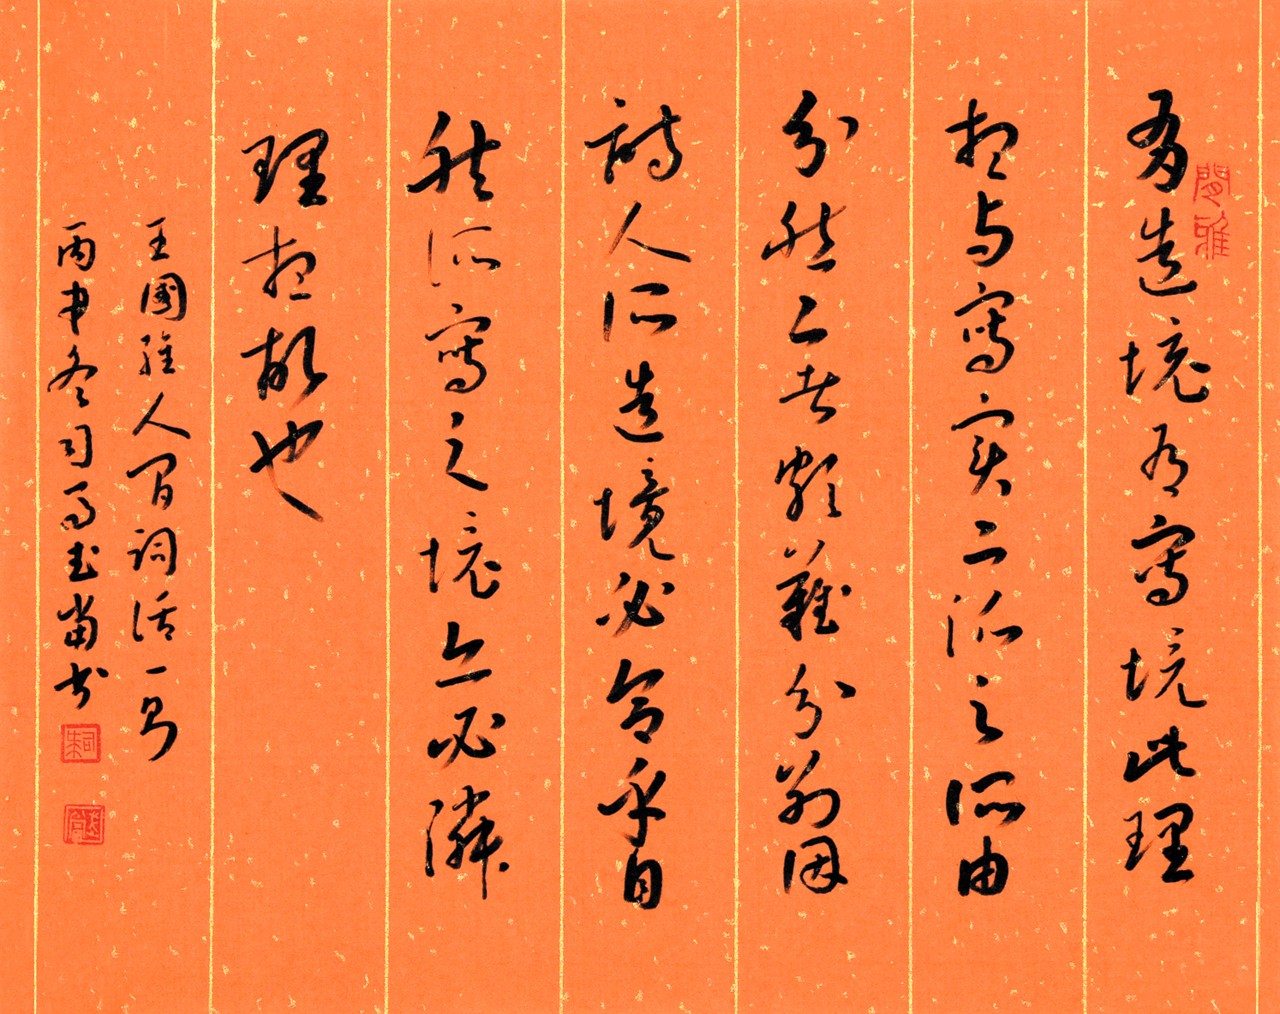 有造境有寫境此理
想与寫实二派之所由
分然二者頗難分別因
詩人所造境必合乎自
然所寫之境亦必隣
理想故也
王國維人间詞话一則
丙申冬司马武當书
閒雅